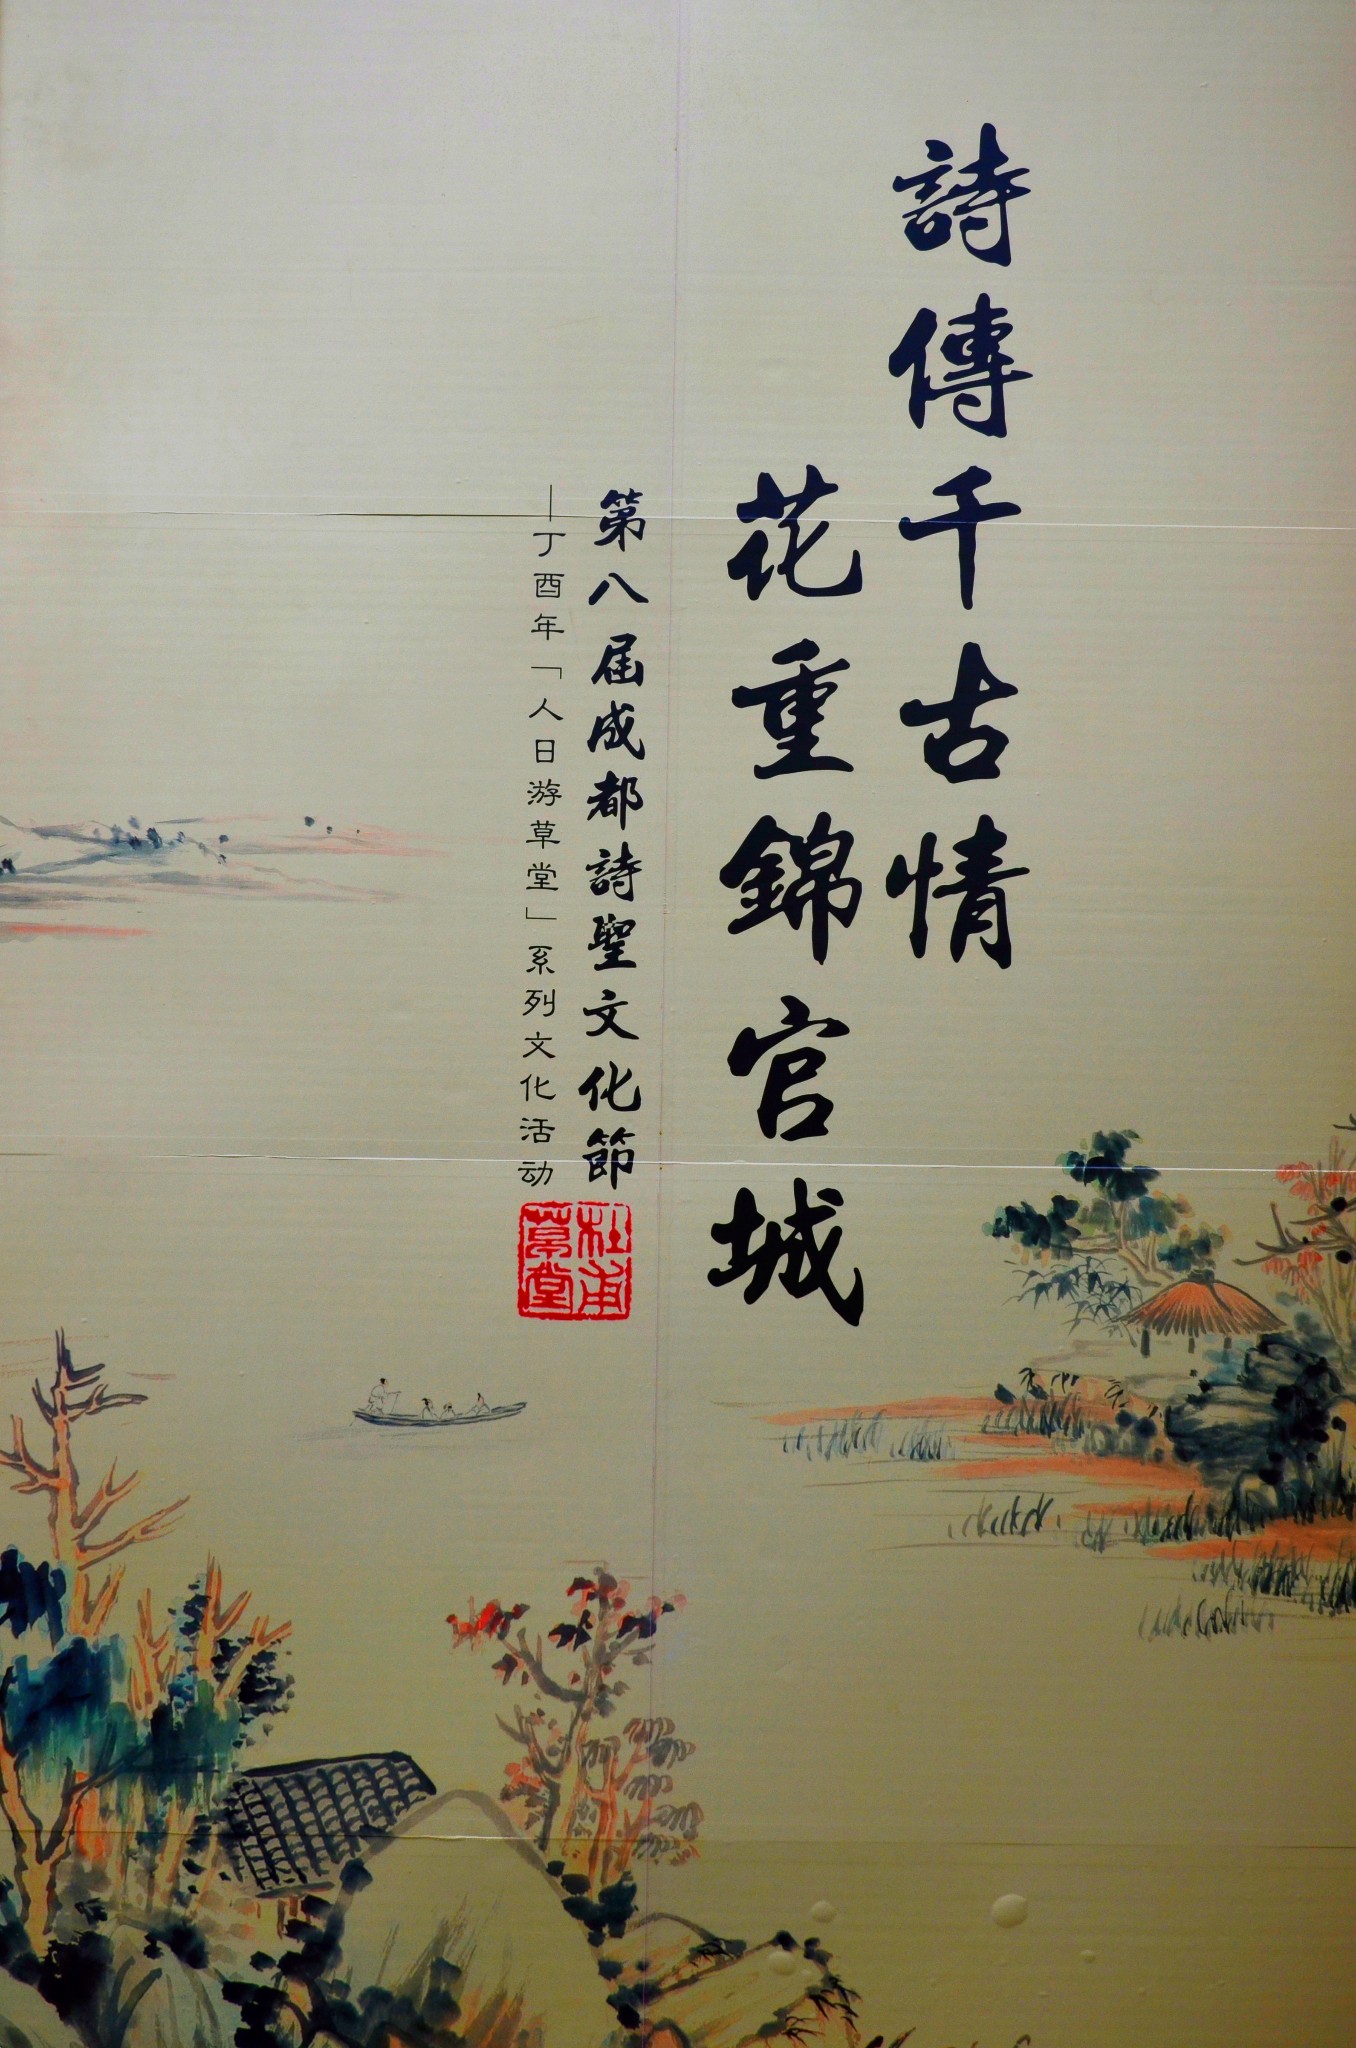 詩傳千古情
花重錦官城
第八届成都詩聖文化節
—丁酉年「人日游草堂」系列文化活动
杜甫草堂